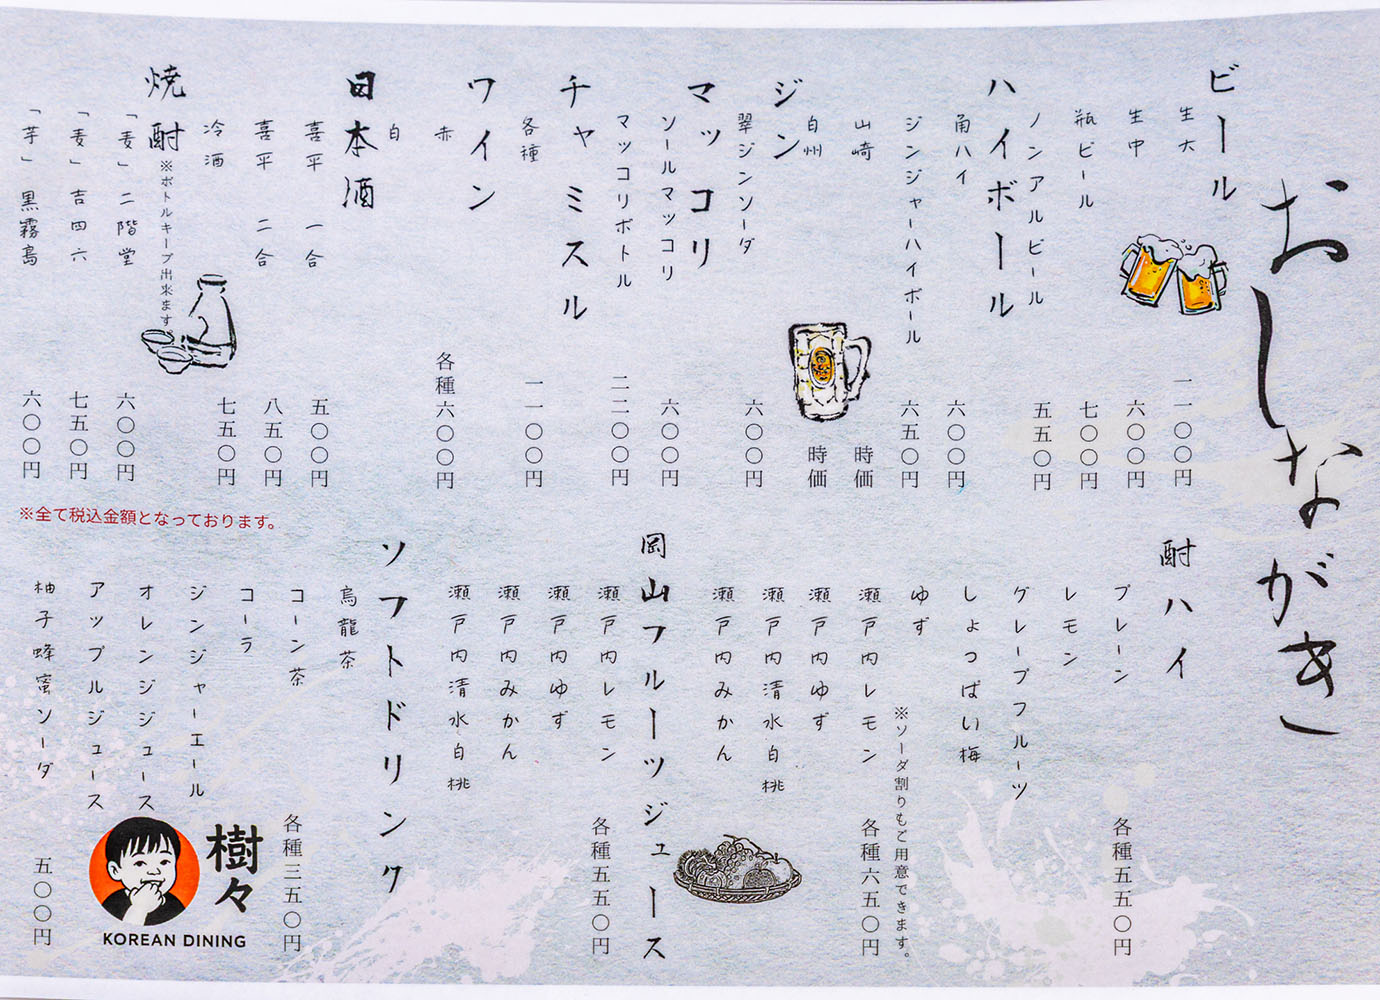 おしながき
ビール
生大 一一〇〇円
生中 六〇〇円
瓶ビール 七〇〇円
ノンアルビール 五五〇円
ハイボール
角ハイ 六〇〇円
ジンジャーハイボール 六五〇円
山崎 時価
白州 時価
ジン
翠ジンソーダ 六〇〇円
マッコリ
ソールマッコリ 六〇〇円
マッコリボトル 二二〇〇円
チャミスル
各種 一一〇〇円
ワイン
赤 各種六〇〇円
白
日本酒
喜平 一合 五〇〇円
喜平 二合 八五〇円
冷酒 七五〇円
焼酎 ※ボトルキープ出来ます。
「麦」二階堂 六〇〇円
「麦」吉四六 七五〇円
「芋」黒霧島 六〇〇円
※全て税込金額となっております。
酎ハイ
プレーン 各種五五〇円
レモン
グレープフルーツ
しょっぱい梅
ゆず
※ソーダ割りもご用意できます。
瀬戸内レモン 各種六五〇円
瀬戸内ゆず
瀬戸内清水白桃
瀬戸内みかん
岡山フルーツジュース
瀬戸内レモン 各種五五〇円
瀬戸内ゆず
瀬戸内みかん
瀬戸内清水白桃
ソフトドリンク
烏龍茶
コーン茶 各種三五〇円
コーラ
ジンジャーエール
オレンジジュース
アップルジュース
柚子蜂蜜ソーダ 五〇〇円
樹々
KOREAN DINING